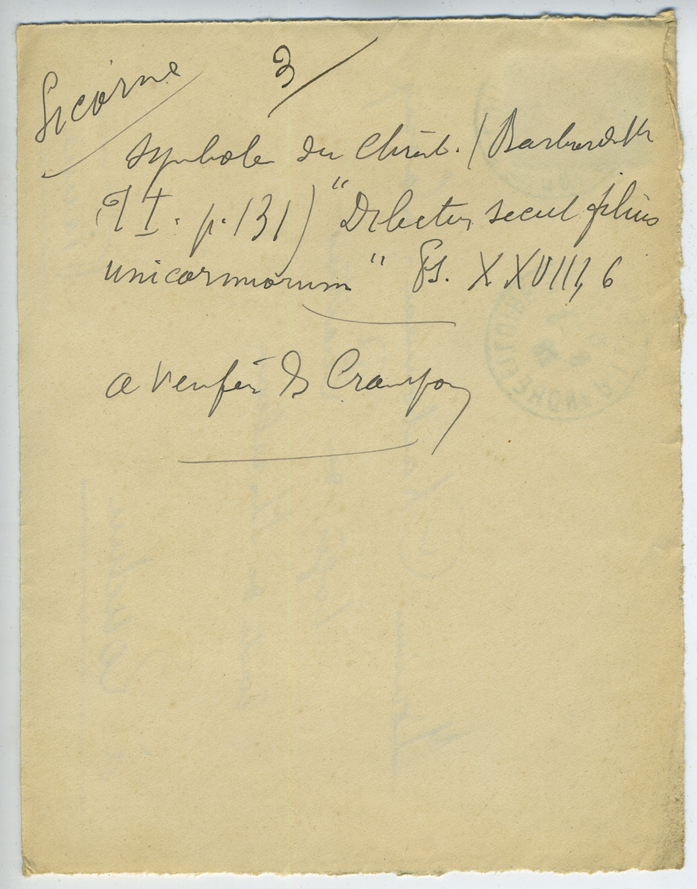 Licorne 3/
Symbole du Christ. (Barbier de M
T I. p. 131) "Dilectus sicut filius
unicornuorum" Ps. XXVIII, 6
a vérifier ds Crampon